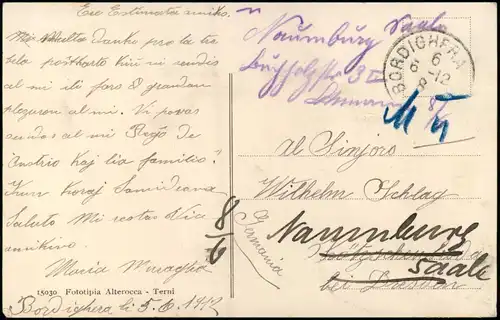 Tre Estimata amiko.
Mi Multe danko pro la tre
bela poshkarto kiu vi sendis
al mi iti fars 8 grandan
plezuron al mi. Vi povas
sendos al mi
Kaj lia familio?
Kun koraj Samideana
Saluto Mi restas Via
amikino
Maria
15030 Fototipia Alterocca - Terni
Bordighera li 5.6.1912
Naumburg Saale
Buchholzstr 3 II
BORDIGHERA
6
6 12
8
al Sinjoro
Wilhelm Schlag
Naumburg
Saale
bei Dresden
Germania
8/6